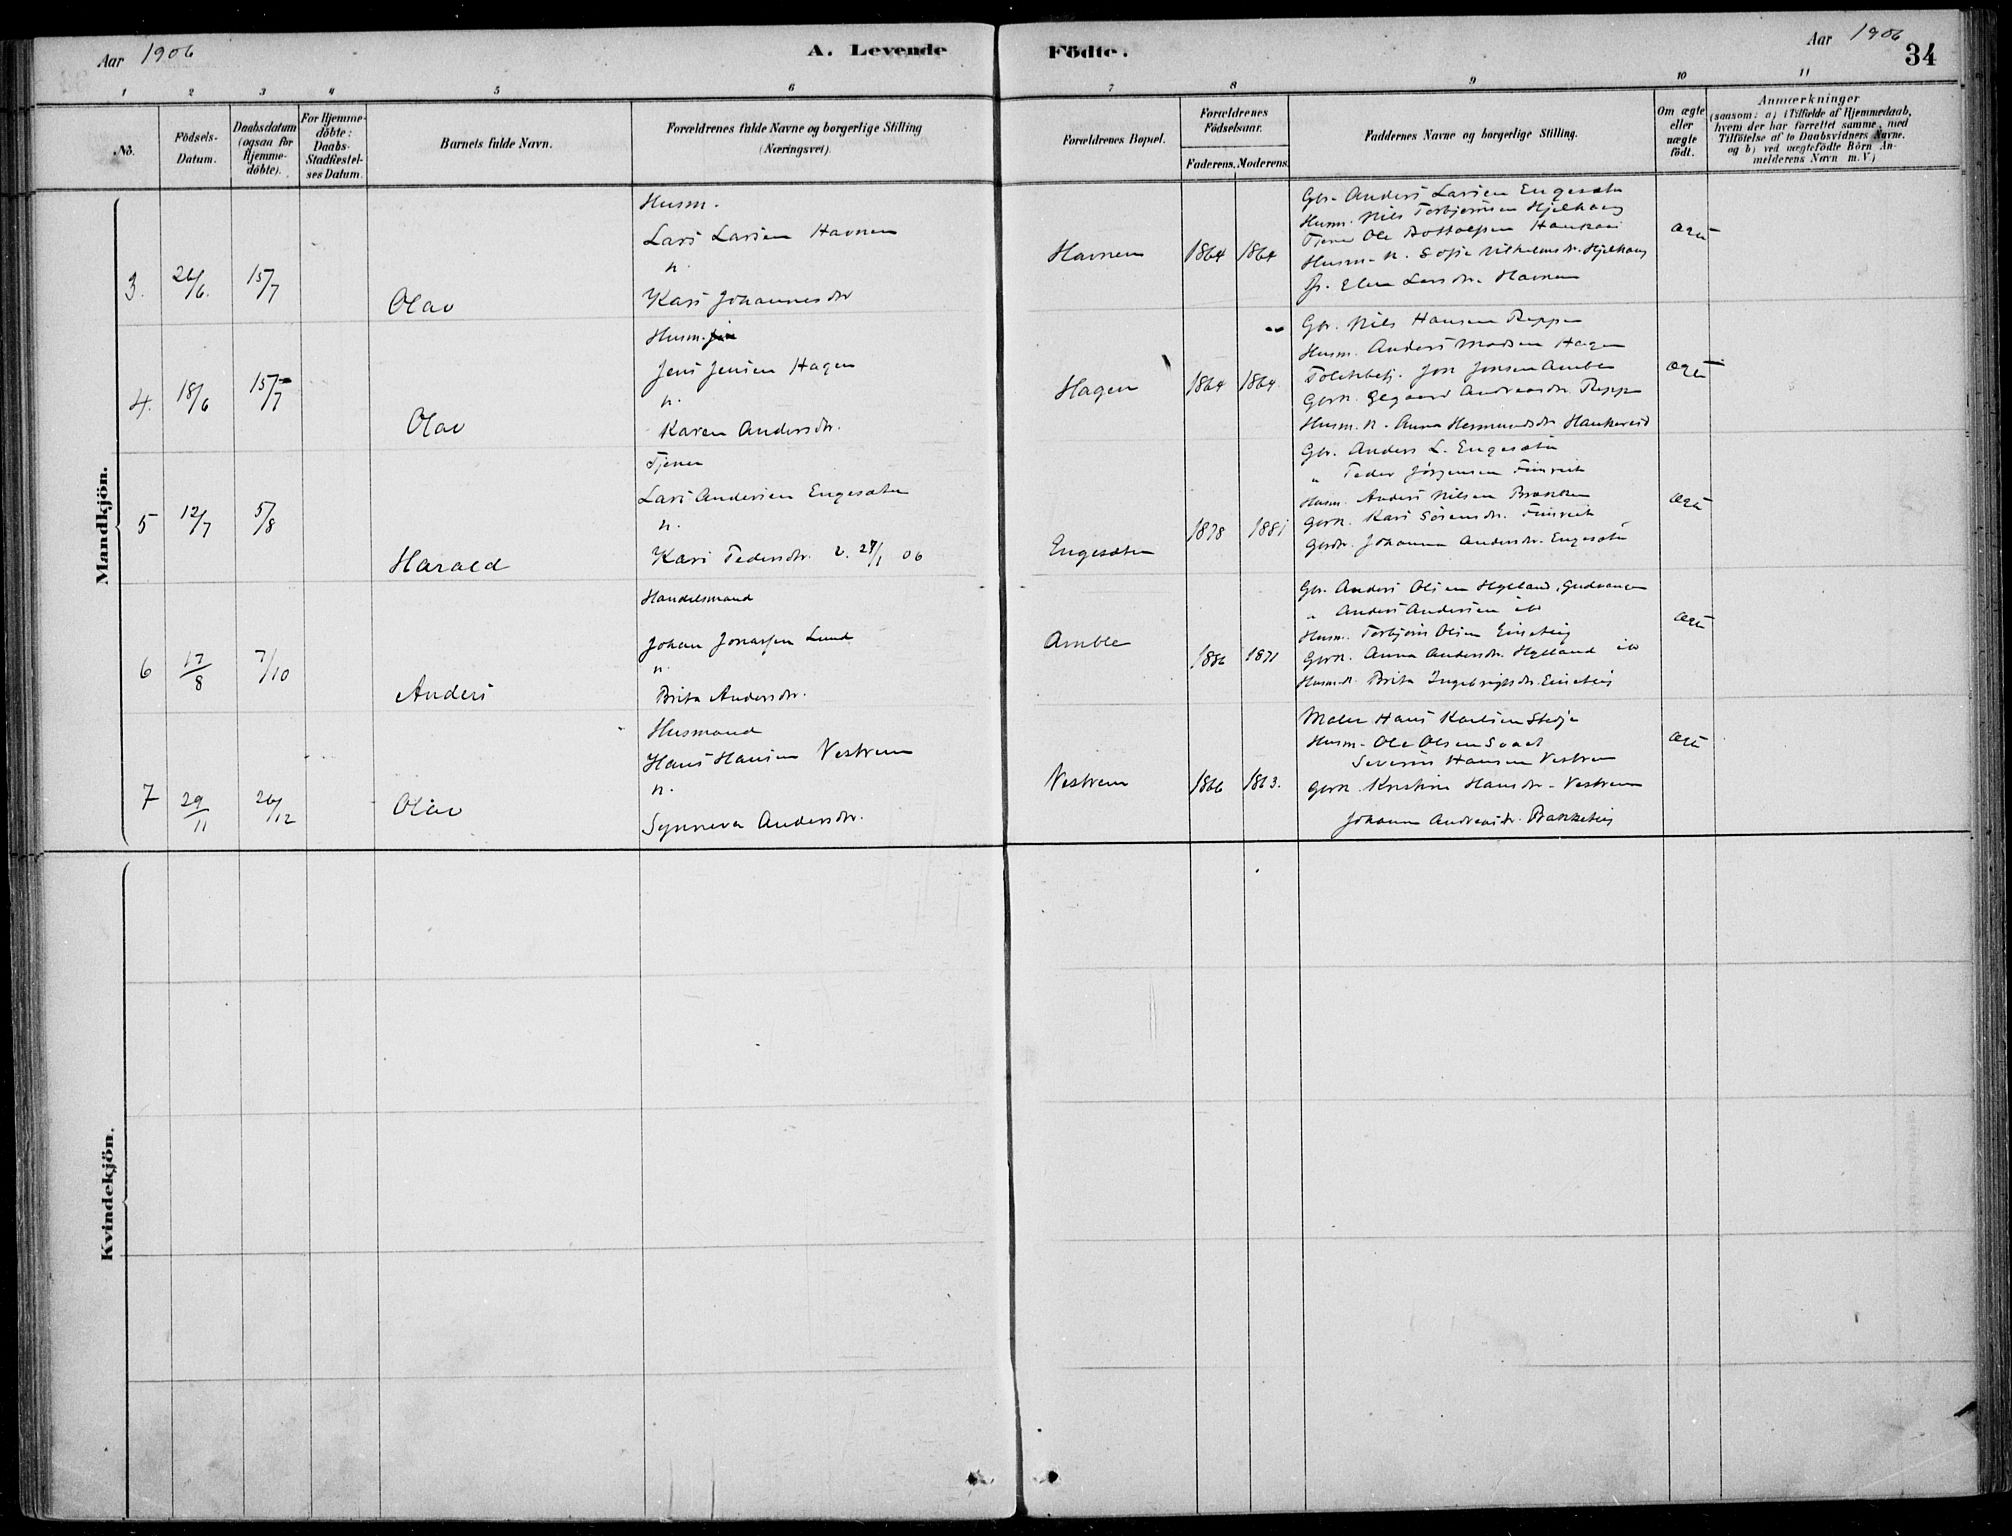 Aar 1906
A. Levende Födte.
Aar 1906
34
1 2 3 4 5 6 7 8 9 10 11
No.
Födsels-Datum.
Daabsdatum (ogsaa for Hjemme-döbte).
For Hjemme-döbte: Daabs-Stadfæstel-ses Datum.
Barnets fulde Navn.
Forældrenes fulde Navne og borgerlige Stilling (Næringsvei).
Forældrenes Bopæl.
Forældrenes Födselsaar.
Faderens. Moderens.
Faddernes Navne og borgerlige Stilling.
Om ægte eller uægte födt.
Anmærkninger (saasom: a) i Tilfælde af Hjemmedaab, hvem der har forrettet samme, med Tilföielse af to Daabsvidners Navne, og b) ved uægtefödte Börn Anmelderens Navn m. V.)
Mandkjön.
3. 26/6. 15/7
Olav
Husm.
Lars Larsen Havnen
h.
Kari Johannesdr
Havnen 1864 1864
Gbr. Anders Larsen Engesæter
Husm. Nils Torbjørnsen Hjelhaug
Tjener Ole Bottolfsen
Husm. k. Sofie Vilhelmsdr. Hjelhaug
P. Elen Larsdr. Havnen
ægte
4. 18/6 15/7
Olav
Husm.
Jens Jensen Hagen
h.
Karen Andersdr.
Hagen 1864 1864
Gbr. Nils Hansen Reppen
Husm. Anders Madsen Hagen
Jon Jonsen Amble
Gbrk. Andreasdr. Reppen
Husm. k. Anna Hermundsdr
ægte
5 12/7 5/8
Harald
Tjener
Lars Andersen Engesæter
h.
Kari Pedersdr. v. 27/1 06
Engesæter 1878 1881
Gbr. Anders L. Engesæter
" Peder Jørgensen Fimreite
Husm. Anders Nilsen Brækken
Gbrk. Kari Sørensdr. Fimreite
Gbrdr. Johanna Andersdr. Engesæter
ægte
6 17/8 7/10
Anders
Handelsmand
Johan Jonassen Lund
h.
Brita Andersdr.
Amble 1886 1871
Gbr. Anders Olsen Hylland, Gudvangen
" Anders Andersen ib
Husm. Torbjørn Olsen
Gbrk. Anna Andersdr. Hylland ib
Husm. k. Brita Ingebrigtsdr.
ægte
7 29/11 26/12
Olav
Husmand
Hans Hansen Vestrem
h.
Synneva Andersdr.
Vestrem 1866 1863.
Maler Hans Karlsen Stedje
Husm. Ole Olsen
Severin Hansen Vestrem
Gbrk. Kristine Hansdr. Vestrem
Johanna Andreasdr. Bakketeig
ægte
Kvindekjön.